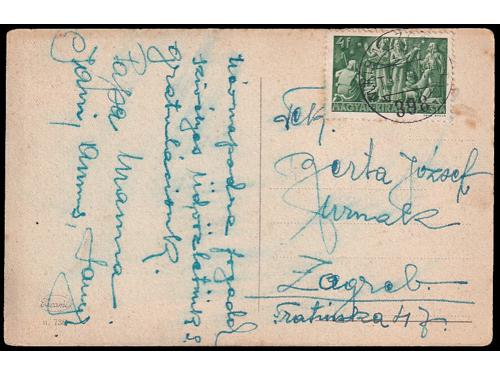 Névnapodra fogadd
szívünges üdvözletünk s
gratulacionk.
Papa Mamma
Jani, Annus,
4f
MAGYAR KIR. POSTA
398
Tek.
Gerta József
Urnak
Zagreb.
Tratinska 47.